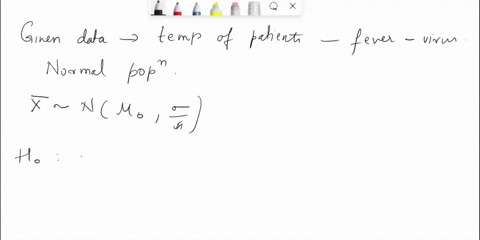 Given data → temp of patients - fever - virus.
Normal popⁿ.
X̄ ~ N(M₀, σ/√n)
H₀ :